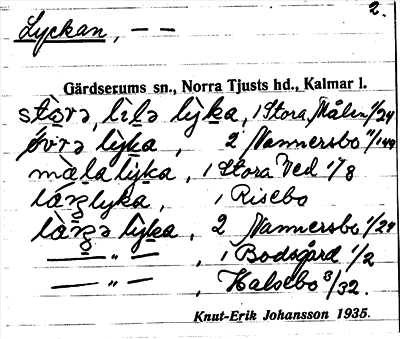 2.
Lyckan, — —
Gärdserums sn., Norra Tjusts hd., Kalmar l.
stàrə, lìlə lỳka, 1 Stora Målen 1/24
övrə lỳka, 2 Vannersbo 11/144
mæ̀la lỳka, 1 Stora Ved 1/8
lyka, 1 Risebo
lỳka, 2 Vannersbo 1/24
— " —, 1 Bodsgård 1/2
— " —, Halsebo 3/32.
Knut-Erik Johansson 1935.